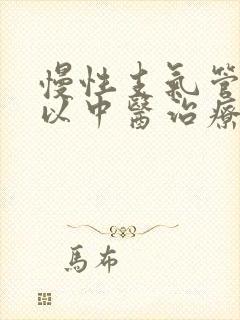 慢性支氣管
以中醫治療
馬布